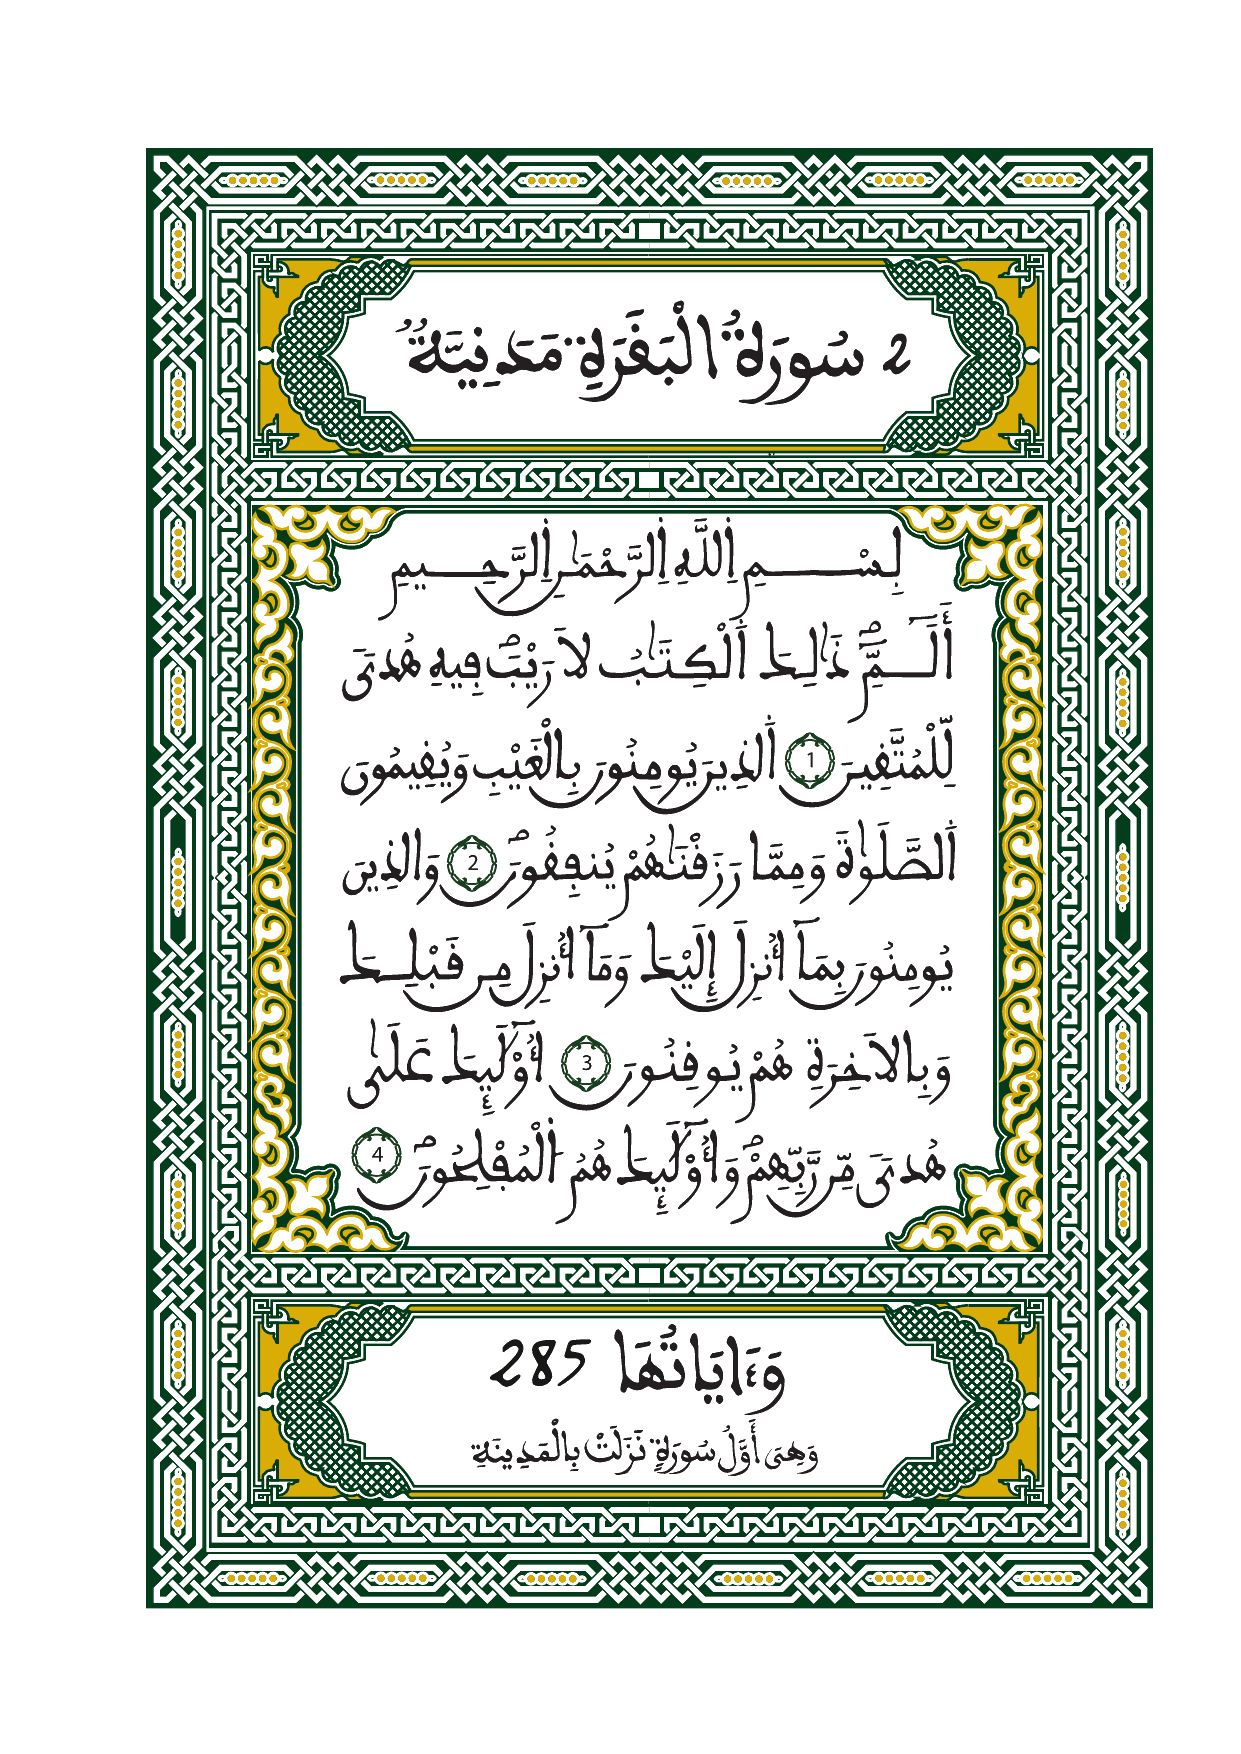 2 سُورَةُ الْبَقَرَةِ مَدَنِيَّةٌ
بِسْمِ اِ۬للَّهِ اِ۬لرَّحْمَٰنِ اِ۬لرَّحِيمِ
أَلَٓمِّٓۖ ذَٰلِكَ اَ۬لْكِتَٰبُ لَا رَيْبَۖ فِيهِ هُدىٗ
لِّلْمُتَّقِينَ 1 اَ۬لذِينَ يُومِنُونَ بِالْغَيْبِ وَيُقِيمُونَ
اَ۬لصَّلَوٰةَ وَمِمَّا رَزَقْنَٰهُمْ يُنفِقُونَۖ 2 وَالذِينَ
يُومِنُونَ بِمَآ أُنزِلَ إِلَيْكَ وَمَآ أُنزِلَ مِن قَبْلِكَ
وَبِالَاخِرَةِ هُمْ يُوقِنُونَ 3 أُوْلَٰٓئِكَ عَلَىٰ
هُدىٗ مِّن رَّبِّهِمْۖ وَأُوْلَٰٓئِكَ هُمُ اُ۬لْمُفْلِحُونَۖ 4
وَءَايَاتُهَا 285
وَهِىَ أَوَّلُ سُورَةٍ نَزَلَتْ بِالْمَدِينَةِ